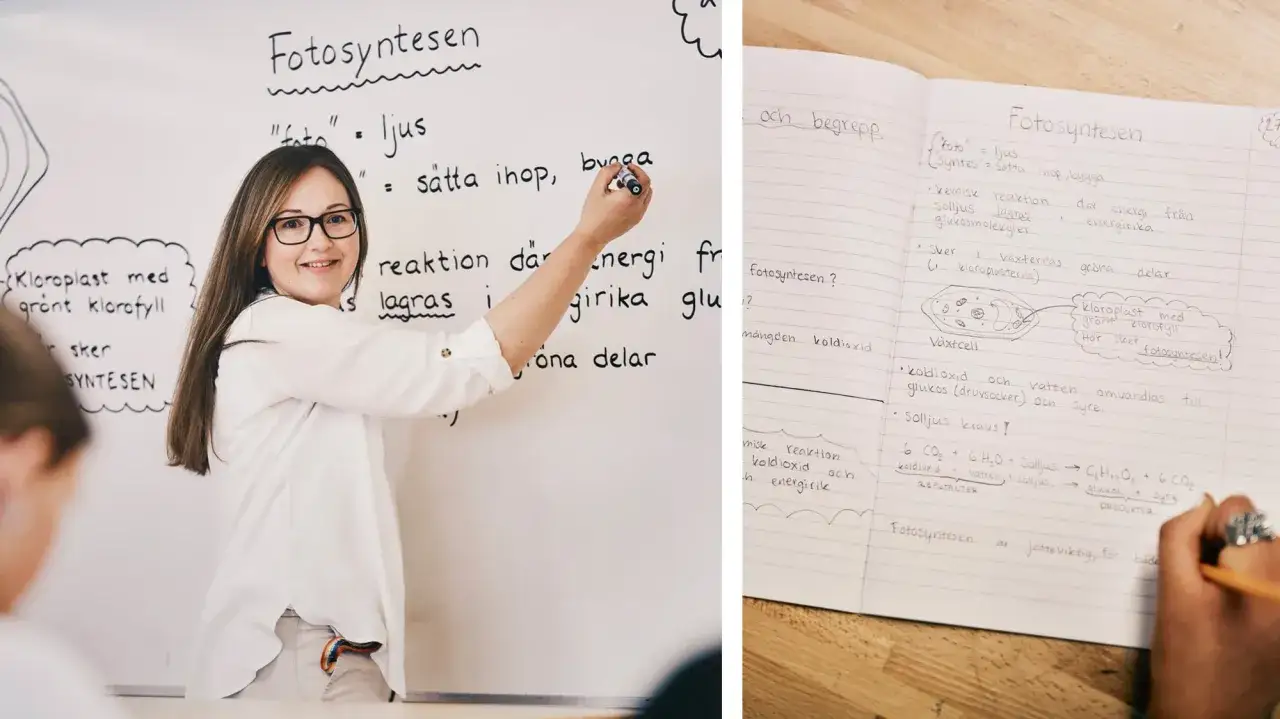 Fotosyntesen
"foto" = ljus
" = sätta ihop, bygga
reaktion där energi fr
lagras i girika glu
gröna delar
Kloroplast med
grönt klorofyll
sker
SYNTESEN
och begrepp
fotosyntesen?
?
mängden koldioxid
misk reaktion
koldioxid och
h energirik
Fotosyntesen
"foto" = ljus
syntes = sätta ihop, bygga
• kemisk reaktion där energi från
solljus lagras i energirika
glukosmolekyler
• sker i växternas gröna delar
(i kloroplasterna)
växtcell
kloroplast med
grönt klorofyll
Här sker
fotosyntesen!
• koldioxid och vatten omvandlas till
glukos (druvsocker) och syre.
• Solljus krävs!
6 CO₂ + 6 H₂O + solljus → C₆H₁₂O₆ + 6 CO₂
koldioxid + vatten + solljus →
Fotosyntesen är jätteviktig för